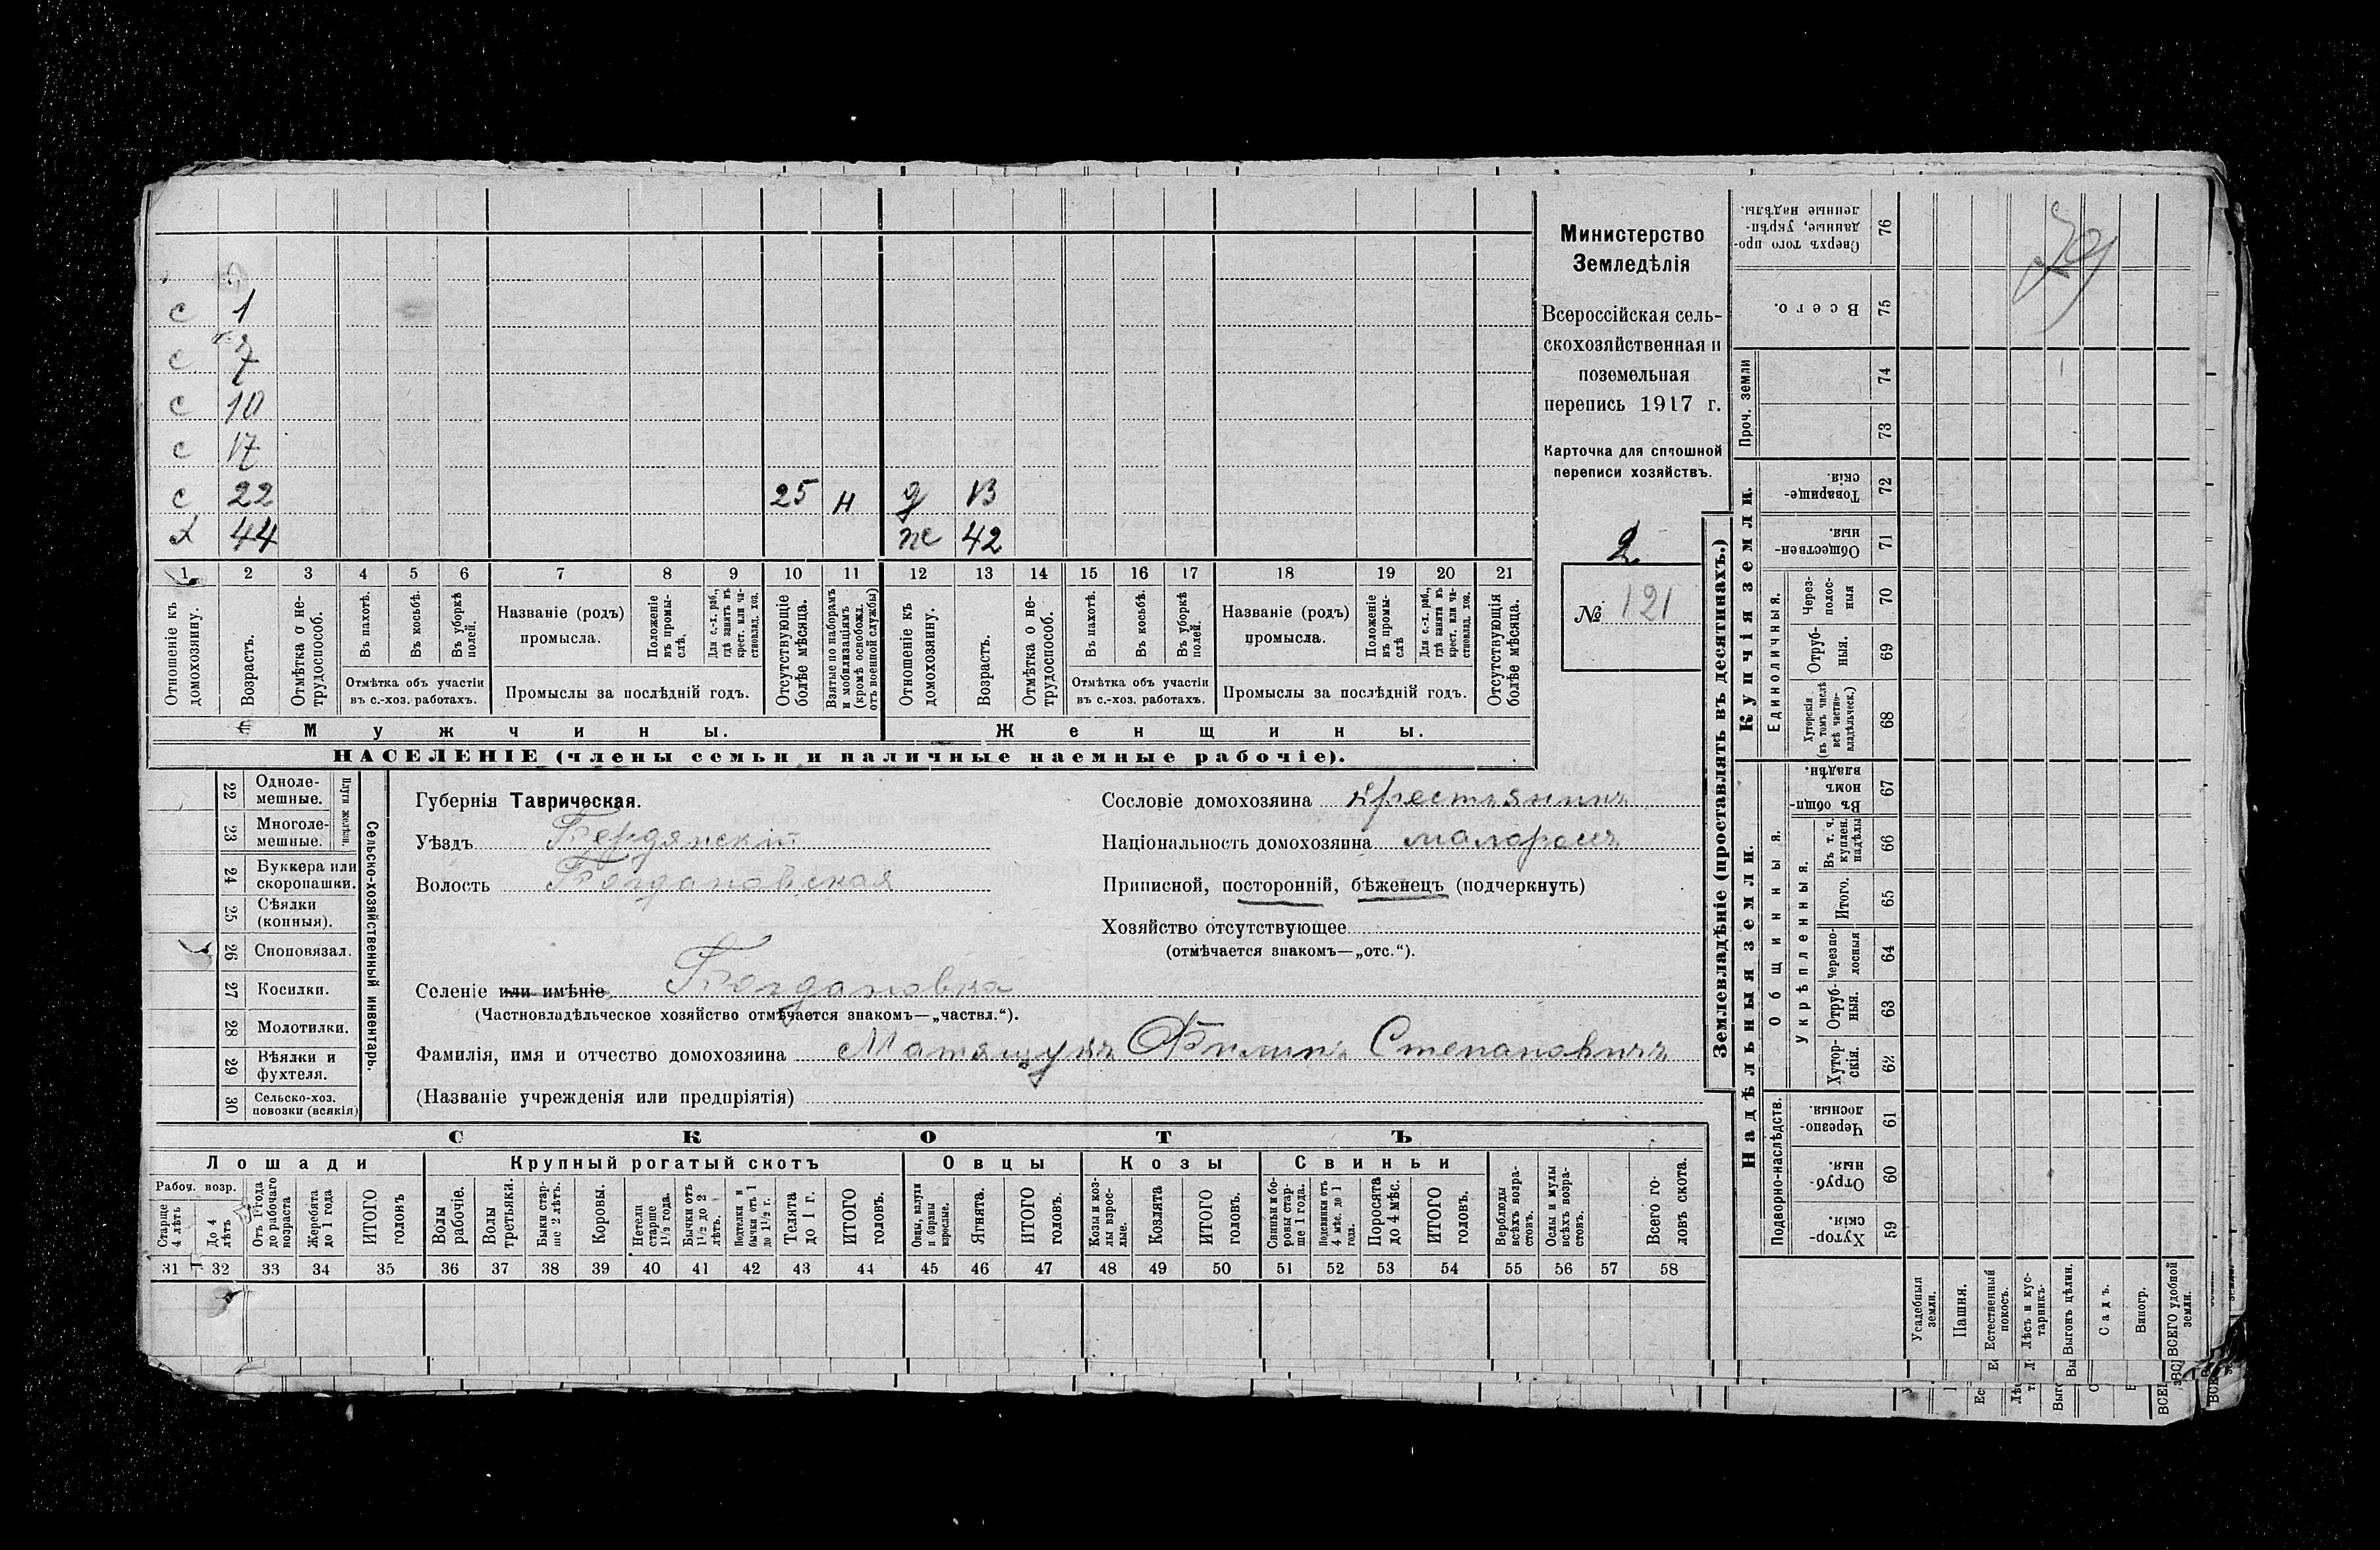 с 1
с 7
с 10
с 17
с 22 25 н д 13
х 44 ж 42
1 2 3 4 5 6 7 8 9 10 11 12 13 14 15 16 17 18 19 20 21
Отношеніе къ домохозяину.
Возрастъ.
Отмѣтка о нетрудоспособ.
Въ пахотѣ.
Въ косьбѣ.
Въ уборкѣ полей.
Отмѣтка объ участіи
въ с.-хоз. работахъ.
Названіе (родъ)
промысла.
Положеніе въ промыслѣ.
Для с.-х. раб., гдѣ занятъ въ крест. или частновлад. хоз.
Промыслы за послѣдній годъ.
Отсутствующіе болѣе мѣсяца.
Взятые по наборамъ и мобилизаціямъ (кромѣ освобожд. отъ военной службы)
Отношеніе къ домохозяину.
Возрастъ.
Отмѣтка о нетрудоспособ.
Въ пахотѣ.
Въ косьбѣ.
Въ уборкѣ полей.
Отмѣтка объ участіи
въ с.-хоз. работахъ.
Названіе (родъ)
промысла.
Положеніе въ промыслѣ
Для с.-х. раб., гдѣ занята въ крест. или частновлад. хоз.
Промыслы за послѣдній годъ.
Отсутствующія болѣе мѣсяца.
Мужчины. Женщины.
НАСЕЛЕНІЕ (члены семьи и наличные наемные рабочіе).
Министерство
Земледѣлія
Всероссійская сель-
скохозяйственная и
поземельная
перепись 1917 г.
Карточка для сплошной
переписи хозяйствъ.
2
№ 121
22 Одноле-
мешные.
23 Многоле-
мешные.
Плуги желѣзн.
24 Буккера или
скоропашки.
25 Сѣялки
(конныя).
26 Сноповязал.
27 Косилки.
28 Молотилки.
29 Вѣялки и
фухтеля.
30 Сельско-хоз.
повозки (всякія)
Сельско-хозяйственный инвентарь.
Губернія Таврическая.
Уѣздъ Бердянскій
Волость Богдановская
Сословіе домохозяина Крестьянинъ
Національность домохозяина малороссъ
Приписной, посторонній, бѣженецъ (подчеркнуть)
Хозяйство отсутствующее
(отмѣчается знакомъ—„отс.“).
Селеніе или имѣніе Богдановка
(Частновладѣльческое хозяйство отмѣчается знакомъ—„частвл.“).
Фамилія, имя и отчество домохозяина Матящукъ Филипъ Степановичъ
(Названіе учрежденія или предпріятія)
СКОТЪ
Лошади Крупный рогатый скотъ Овцы Козы Свиньи
Рабоч. возр.
Старше 4 лѣтъ
До 4 лѣтъ
Отъ 1 года до рабочаго возраста
Жеребята до 1 года
ИТОГО головъ
Волы рабочіе.
Волы третьяки.
Быки старше 2 лѣтъ.
Коровы.
Нетели старше 1½ года.
Бычки отъ 1½ до 2 лѣтъ.
Подтелки и бычки отъ 1 до 1½ г.
Телята до 1 г.
ИТОГО головъ.
Овцы, валухи и бараны взрослые.
Ягнята.
ИТОГО головъ.
Козы и козлы взрослые.
Козлята
ИТОГО головъ.
Свиньи и боровы старше 1 года.
Подсвинки отъ 4 мѣс. до 1 года.
Поросята до 4 мѣс.
ИТОГО головъ.
Верблюды всѣхъ возрастовъ.
Ослы и мулы всѣхъ возрастовъ.
Всего головъ скота.
31 32 33 34 35 36 37 38 39 40 41 42 43 44 45 46 47 48 49 50 51 52 53 54 55 56 57 58
Землевладѣніе (проставлять въ десятинахъ.)
Сверхъ того проданные, укрѣпленные надѣлы. 76
Всего. 75
Проч. земли
74
73
Купчія земли.
Товарищескія. 72
Общественныя. 71
Единоличныя.
Черезполосныя 70
Отрубныя. 69
Хуторскія (въ томъ числѣ всѣ частновладѣльческ.) 68
Надѣльныя земли.
Общинныя.
Въ общинномъ владѣн. 67
Укрѣпленныя.
Въ т. ч. куплен. надѣлы 66
Итого. 65
Черезполосныя 64
Отрубныя. 63
Хуторскія. 62
Подворно-наслѣдств.
Черезполосныя. 61
Отрубныя. 60
Хуторскія. 59
Усадебныя земли.
Пашня.
Естественный покосъ.
Лѣсъ и кустарникъ.
Выгонъ цѣлин.
Садъ.
Виногр.
ВСЕГО удобной земли.